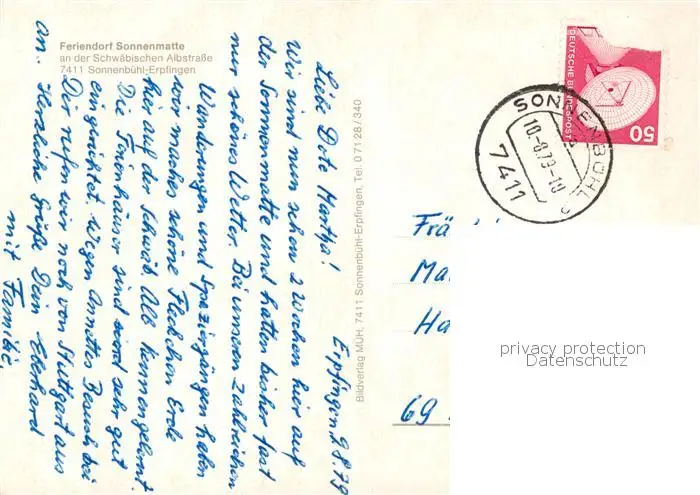 Feriendorf Sonnenmatte
an der Schwäbischen Albstraße
7411 Sonnenbühl-Erpfingen
Erpfingen, 9.8.79
Liebe Dote Martha!
Wir sind nun schon 2 Wochen hier auf
der Sonnenmatte und hatten bisher fast
nur schönes Wetter. Bei unseren zahlreichen
Wanderungen und Spaziergängen haben
wir manches schöne Fleckchen Erde
hier auf der Schwäb. Alb kennengelernt.
Die Ferienhäuser sind sehr gut
eingerichtet. Wegen Besuch bei
Dir rufen wir noch von Stuttgart aus
an. Herzliche Grüße Dein Eberhard
mit Familie.
Bildverlag MÜH, 7411 Sonnenbühl-Erpfingen, Tel. 0 71 28 / 340
DEUTSCHE BUNDESPOST
50
SONNENBÜHL
10.-8.79-10
7411
Frä
Ma
Ha
69
privacy protection
Datenschutz